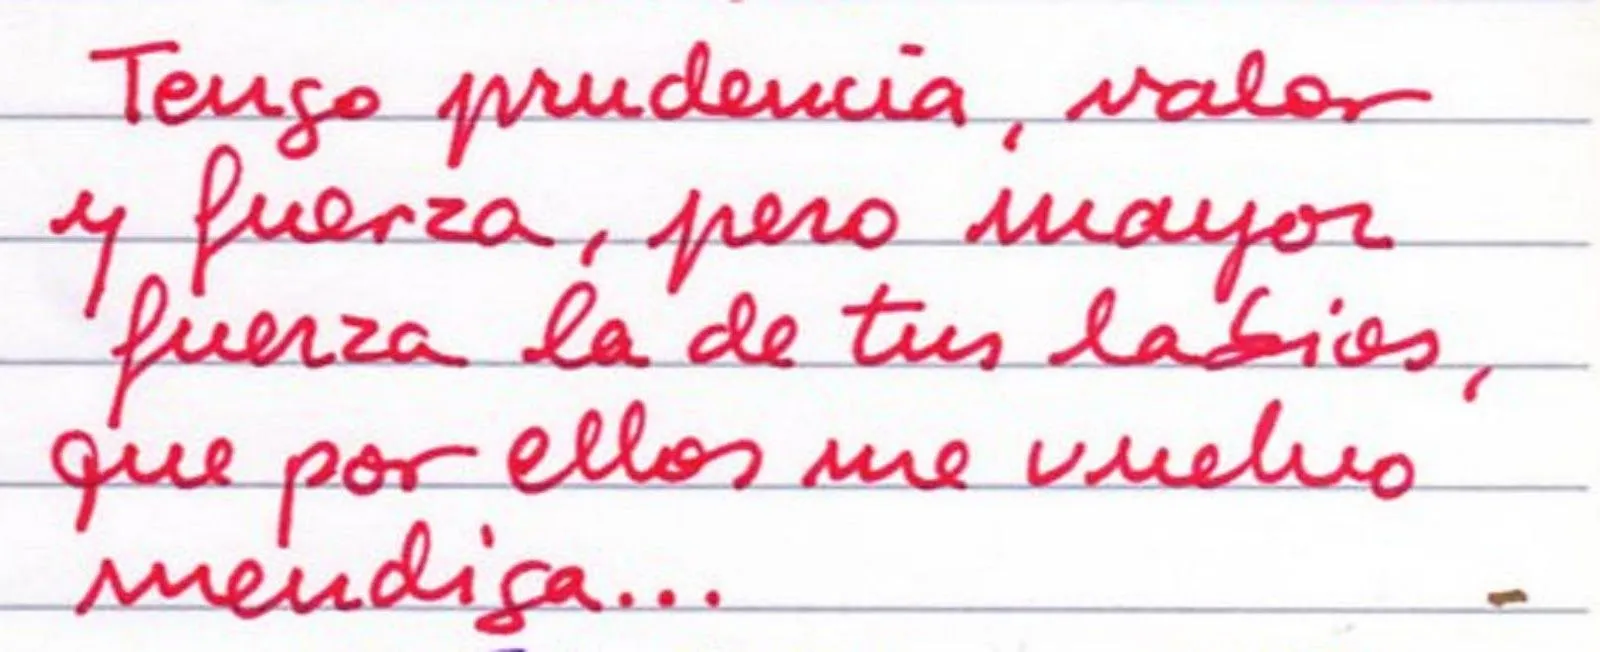 Tengo prudencia, valor
y fuerza, pero mayor
fuerza la de tus labios,
que por ellos me vuelvo
mendiga...